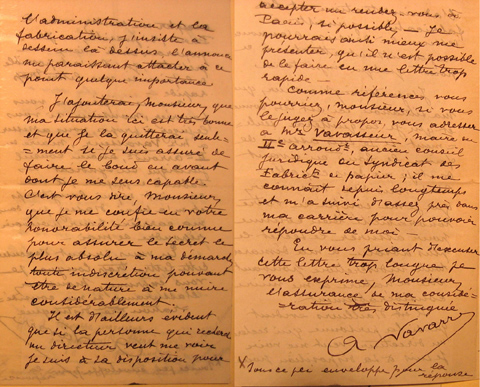 l'administration et la
fabrication, j'insiste à
dessein là dessus, l'annonce
me paraissant attacher à ce
point quelque importance
J'ajouterai, Monsieur, que
ma situation ici est très bonne
et que je la quitterai seule-
-ment si je suis assuré de
faire le bond en avant
dont je me sens capable.
C'est vous dire, Monsieur,
que je me confie en votre
honorabilité bien connue
pour assurer le secret le
plus absolu à ma démarche,
toute indiscrétion pouvant
être de nature à me nuire
considérablement.
Il est d'ailleurs évident
que si la personne qui recherche
un directeur veut me voir
je suis à sa disposition pour
accepter un rendez-vous à
Paris, si possible — Je
pourrais ainsi mieux me
présenter, qu'il n'est possible
de le faire en une lettre trop
rapide —
Comme références vous
pourriez, monsieur, si vous
le jugez à propos, vous adresser
à Mr Vavasseur, maire du
IIe arrondt, ancien conseil
juridique du Syndicat des
Fabricts de papier; il me
connaît depuis longtemps
et m'a suivi d'assez près dans
ma carrière pour pouvoir
répondre de moi —
En vous priant d'excuser
cette lettre trop longue je
vous exprime, Monsieur,
l'assurance de ma considé-
-ration très distinguée
A Navarre
X sous ce pli enveloppe pour la
réponse